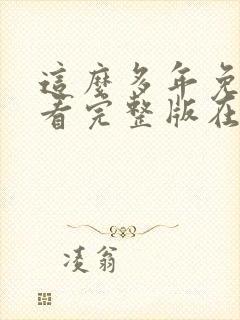 這麼多年免
看完整版在
凌翁